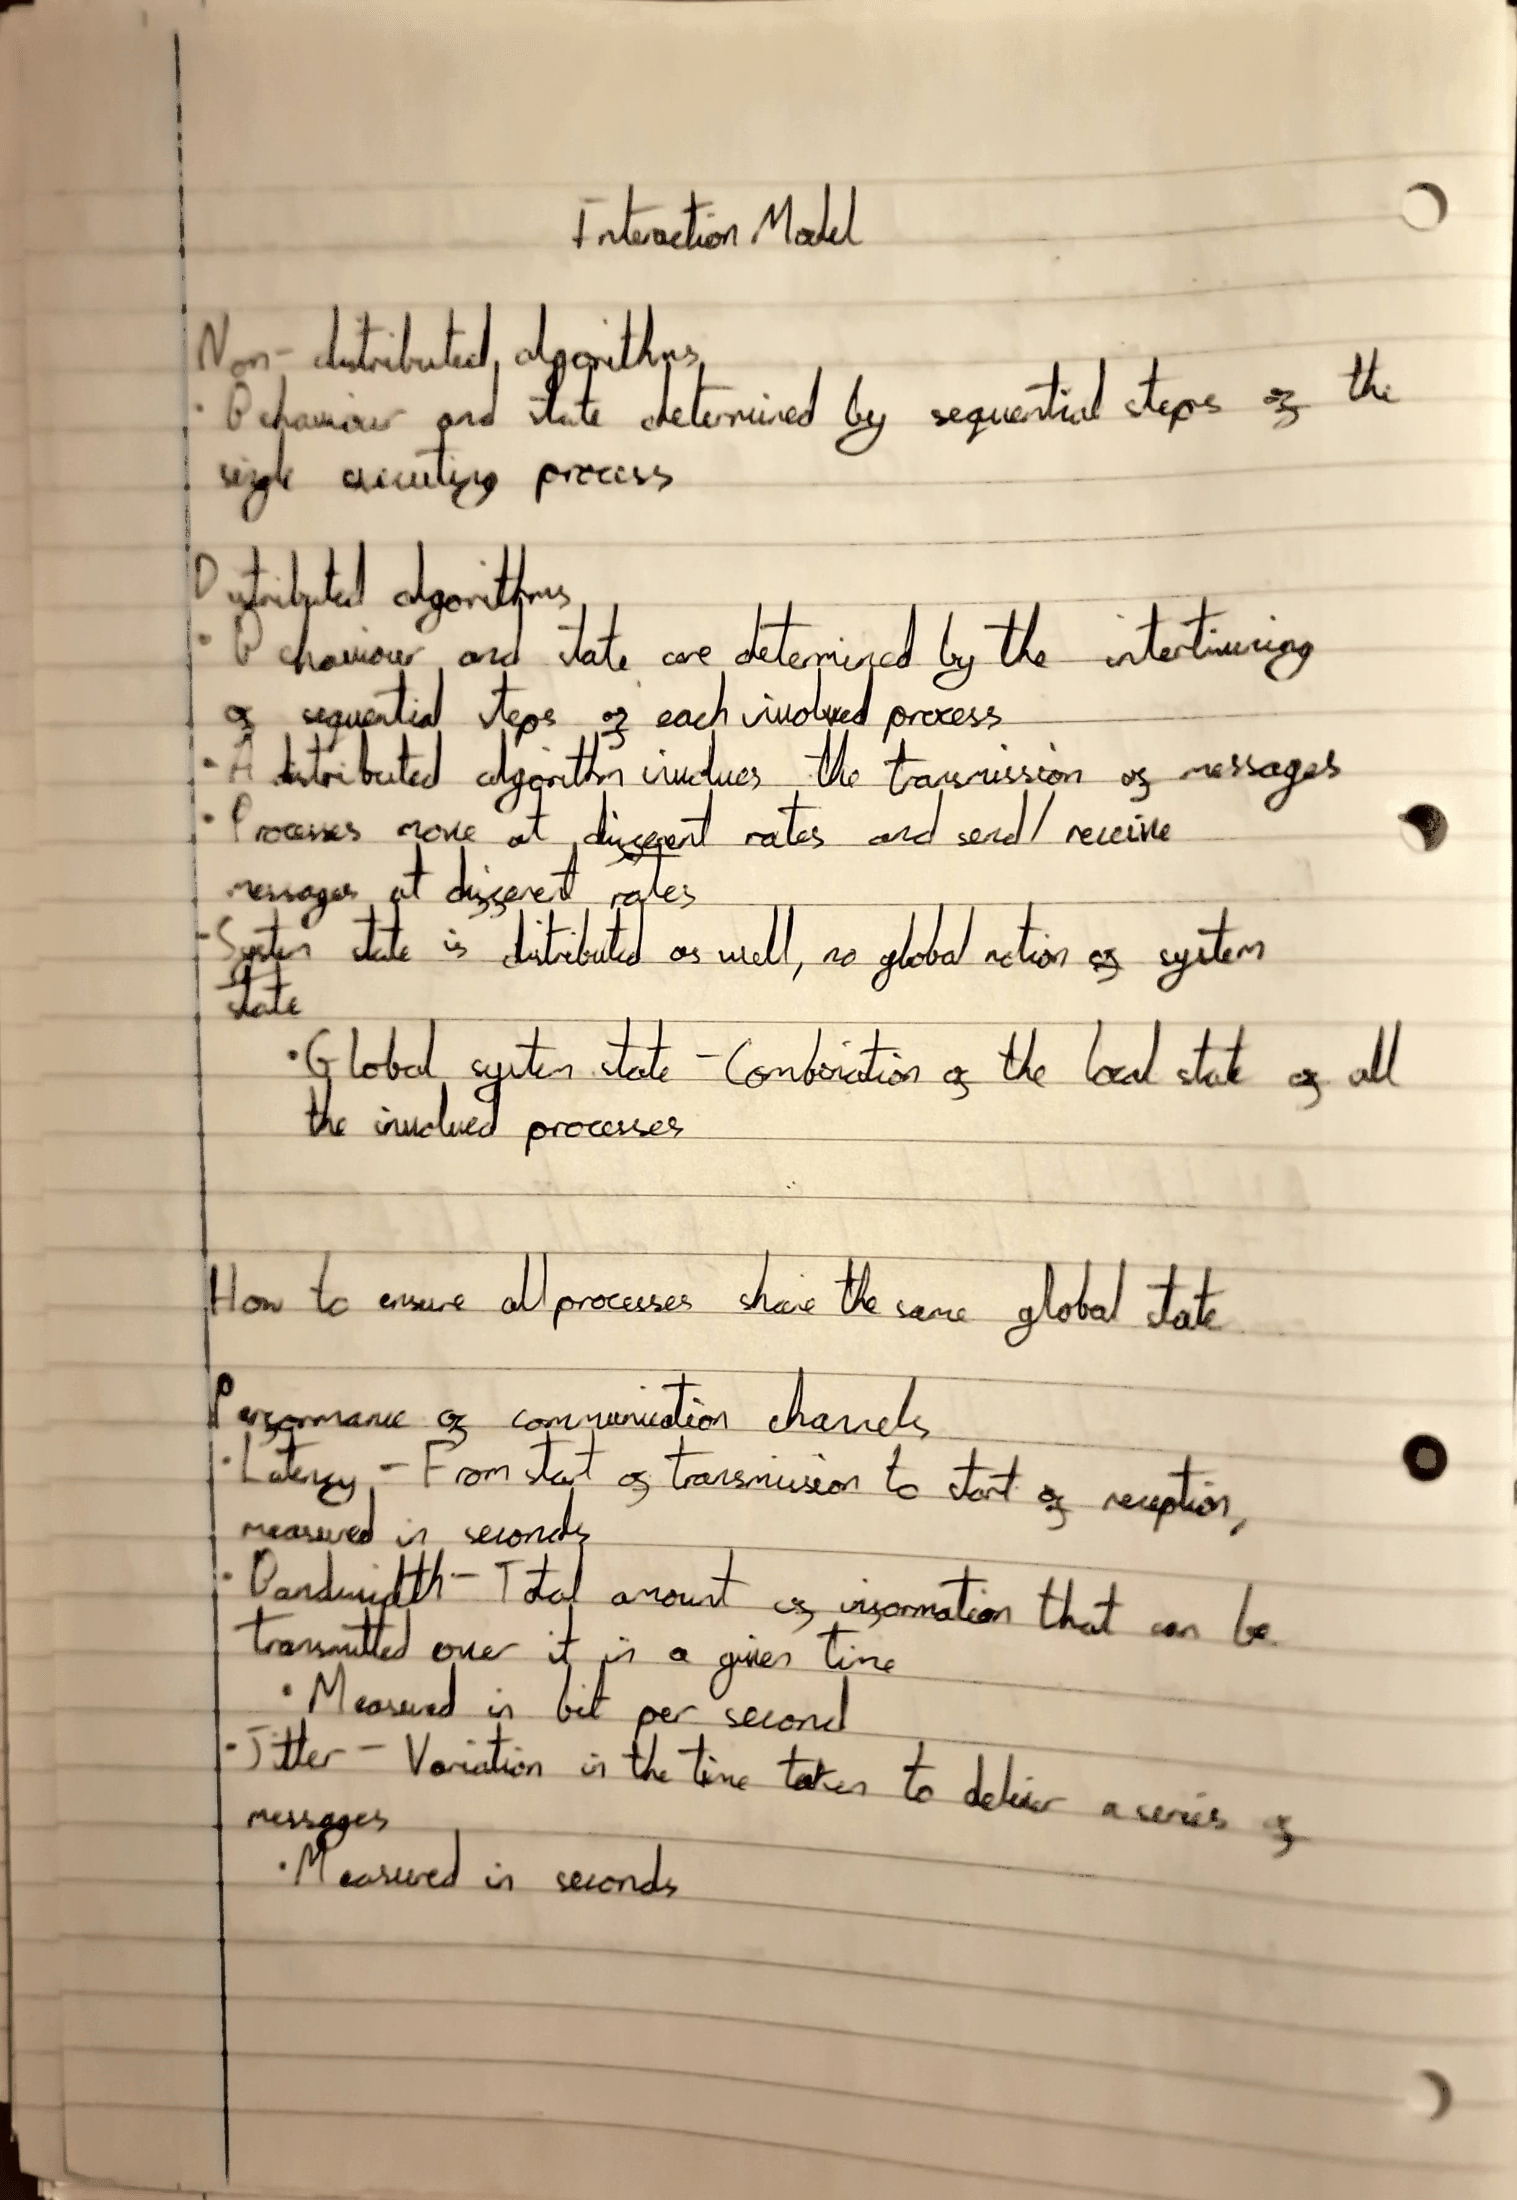 Interaction Model
Non-distributed algorithms
· Behaviour and state determined by sequential steps of the
single executing process
Distributed algorithms
· Behaviour and state are determined by the intertwining
of sequential steps of each involved process
· A distributed algorithm involves the transmission of messages
· Processes move at different rates and send/receive
messages at different rates
- System state is distributed as well, no global notion of system
state
· Global system state - Combination of the local state of all
the involved processes
How to ensure all processes share the same global state
Performance of communication channels
· Latency - From start of transmission to start of reception,
measured in seconds
· Bandwidth - Total amount of information that can be
transmitted over it in a given time
· Measured in bit per second
· Jitter - Variation in the time taken to deliver a series of
messages
· Measured in seconds